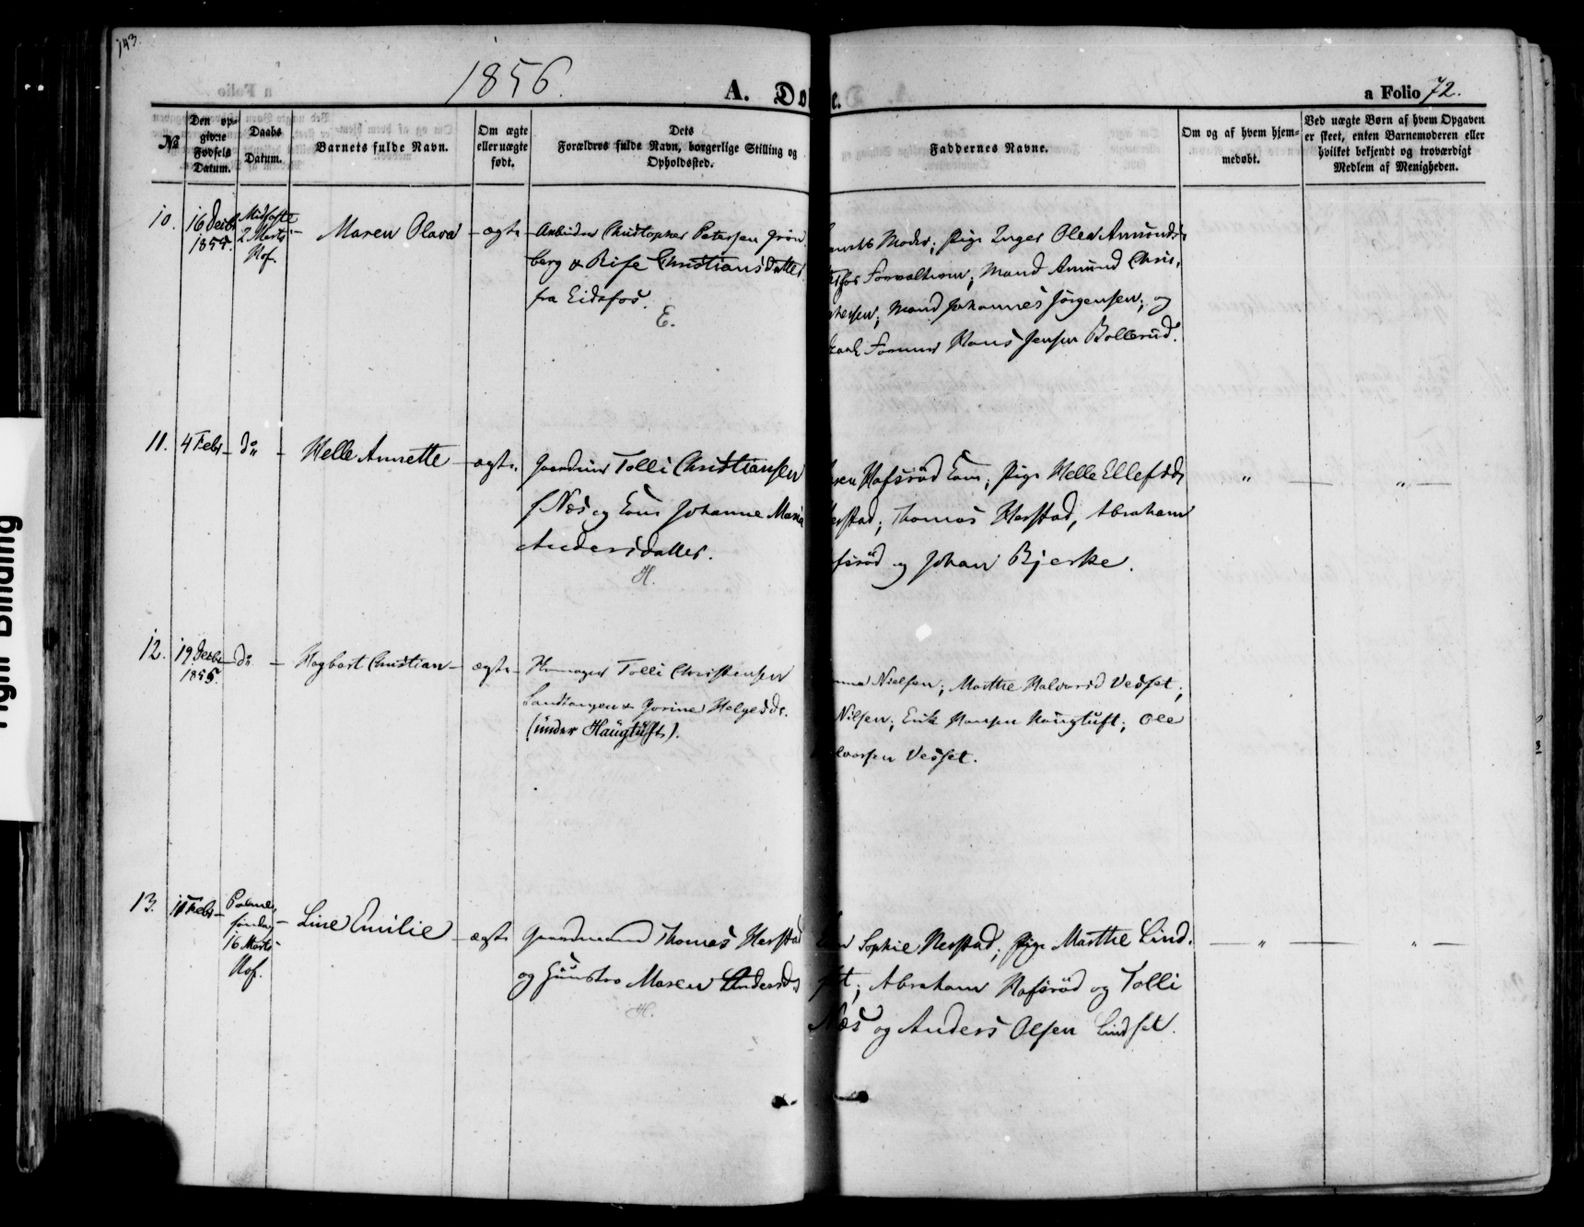 143.
1856.
A. Do
e.
a Folio 72.
№
Den op-
givne
Fødsels
Datum.
Daabs
Datum.
Barnets fulde Navn.
Om ægte
eller uægte
født.
Dets
Forældres fulde Navn, borgerlige Stilling og
Opholdssted.
Faddernes Navne.
Om og af hvem hjem-
medøbt.
Ved uægte Børn af hvem Opgaven
er skeet, enten Barnemoderen eller
hvilket bekjendt og troværdigt
Medlem af Menigheden.
10.
16 Decbr
1855.
Midfaste
2 Marts
Hof.
Maren Olava
ægte
Arbeider Christopher Petersen Grøn
berg & Rise Christiansdatter
fra Eidsfos.
E.
Moder; Pige Inger Olea Amunds
fos Forvalteren; Mand Amund Chris,
Mand Johannes Jörgensen; og
Hans Jensen Bollerud.
11.
4 Febr
do
Helle Annette
ægte
Gaardmd Tolli Christiansen
Næs og Kone Johanne Maria
Andersdatter.
H.
Hafsröd Kone; Pige Helle Ellefsd
erstad; Thomas Herstad, Abraham
fsröd og Johan Bjerke.
12.
19 Decbr
1855.
do
Hagbart Christian
ægte
Tolli Christensen
& Gorine Helgesdr.
(under Haugtuft).
Nielsen; Marthe Halvorsd Vedset;
Nilsen; Erik Hansen Haugtuft; Ole
lvorsen Vedset.
13.
11 Febr
Palme
søndag
16 Marts
Hof.
Line Emilie
ægte
Gaardmand Thomas Herstad
og Hustro Maren Andersd
H.
Sophie Herstad; Pige Marthe Lind-
set; Abraham Hafsröd og Tolli
Næs og Anders Olsen Lindset.
Right Binding